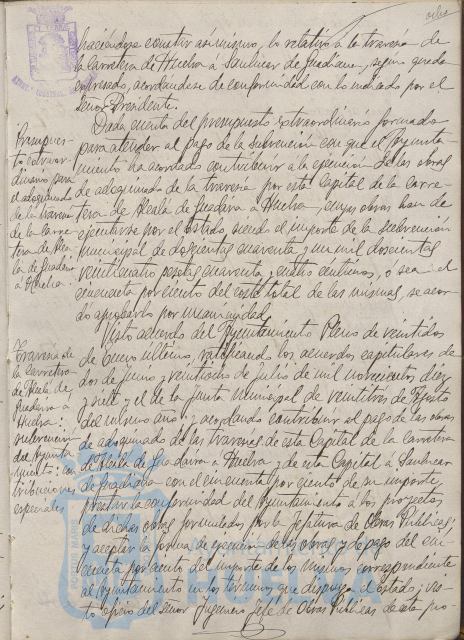 haciéndose constar asimismo, lo relativo a la travesía de
la Carretera de Huelva a Sanlúcar de Guadiana, según queda
expresado, acordándose de conformidad con lo indicado por el
Señor Presidente.
Presupuesto
extraordinario para
el adoquinado
de la travesía
de la Carretera
de Alcalá
de Guadaira
a Huelva.
Dada cuenta del presupuesto extraordinario formado
para atender al pago de la subvención con que el Ayuntamiento
ha acordado contribuir a la ejecución de las obras
de adoquinado de la travesía por esta Capital de la Carretera
de Alcalá de Guadaira a Huelva, cuyas obras han de
ejecutarse por el Estado, siendo el importe de la subvención
municipal de doscientas cuarenta y un mil doscientas
veinticuatro pesetas cuarenta y cuatro céntimos, o sea el
cincuenta por ciento del coste total de las mismas, se acordó
aprobarlo por unanimidad.
Travesía de
la Carretera
de Alcalá de
Guadaira a
Huelva:
subvención
del Ayuntamiento:
contribuciones
especiales
Visto acuerdo del Ayuntamiento Pleno de veintidós
de Enero último, ratificando los acuerdos capitulares de
dos de Junio y veintiocho de Julio de mil novecientos diez
y siete y el de la Junta Municipal de veintitrés de Agosto
del mismo año; y acordando contribuir al pago de las obras
de adoquinado de las travesías de esta Capital de la Carretera
de Alcalá de Guadaira a Huelva y de esta Capital a Sanlúcar
de Guadiana con el cincuenta por ciento de su importe,
prestar la conformidad del Ayuntamiento a los proyectos
de dichas obras formulados por la Jefatura de Obras Públicas;
y aceptar la forma de ejecución de las obras y de pago del cincuenta
por ciento del importe de las mismas correspondiente
al Ayuntamiento en los términos que disponga el Estado; visto
oficio del Señor Ingeniero Jefe de Obras Públicas de esta pro-